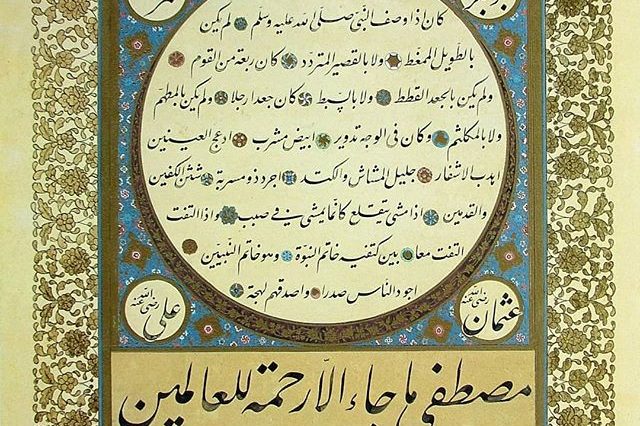 كان اذا وصف النبي صلى الله عليه وسلم لم يكن
بالطويل الممغط ولا بالقصير المتردد كان ربعة من القوم
ولم يكن بالجعد القطط ولا بالسبط كان جعدا رجلا ولم يكن بالمطهم
ولا بالمكلثم وكان في الوجه تدوير ابيض مشرب ادعج العينين
اهدب الاشفار جليل المشاش والكتد اجرد ذو مسربة شثن الكفين
والقدمين اذا مشى يتقلع كانما يمشي في صبب واذا التفت
التفت معا بين كتفيه خاتم النبوة وهو خاتم النبيين
اجود الناس صدرا واصدقهم لهجة
عثمان رضي الله عنه
علي رضي الله عنه
مصطفى ما جاء الّا رحمة للعالمين